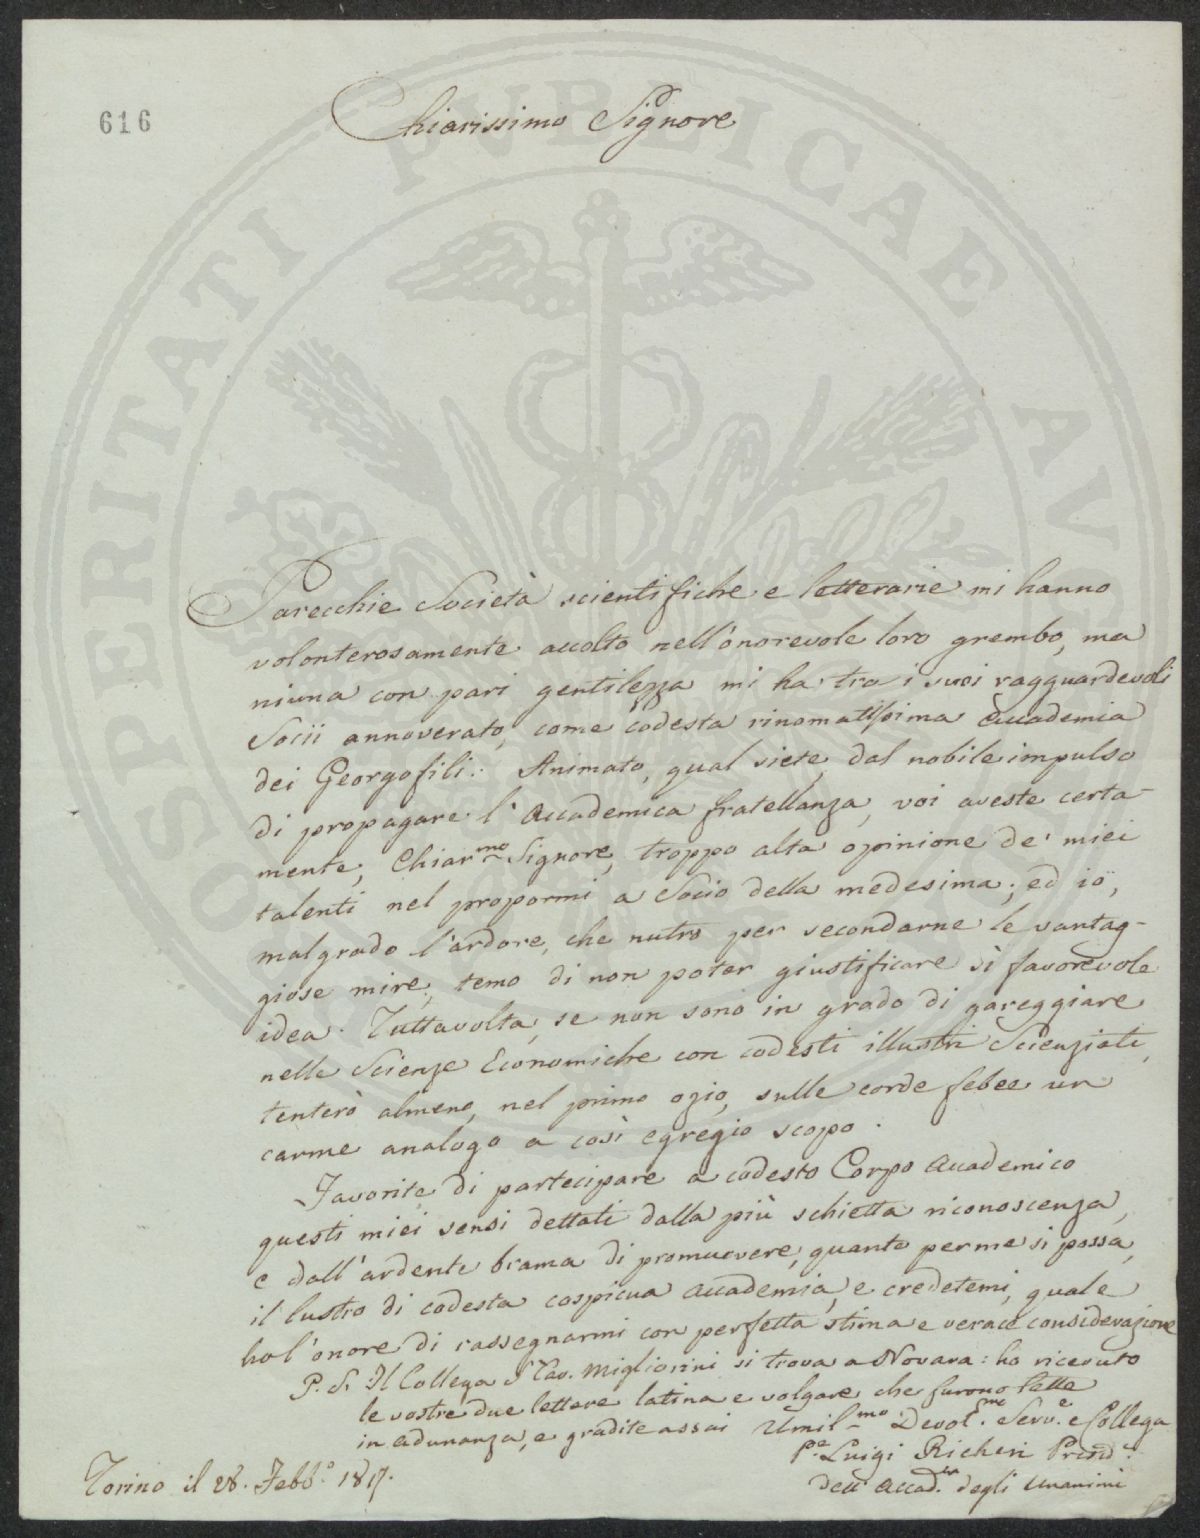 616
Chiarissimo Signore
Parecchie Società scientifiche e letterarie mi hanno
volonterosamente accolto nell'onorevole loro grembo, ma
niuna con pari gentilezza mi ha tra i suoi ragguardevoli
Socii annoverato, come codesta rinomatissima Accademia
dei Georgofili. Animato, qual siete, dal nobile impulso
di propagare l'Accademica fratellanza, voi aveste certa-
mente, Chiar.mo Signore, troppo alta opinione de' miei
talenti nel propormi a Socio della medesima; ed io,
malgrado l'ardore, che nutro per secondarne le vantag-
giose mire, temo di non poter giustificare sì favorevole
idea. Tuttavolta, se non sono in grado di gareggiare
nelle Scienze Economiche con codesti illustri Scienziati,
tenterò almeno, nel primo ozio, sulle corde febee un
carme analogo a così egregio scopo.
Favorite di partecipare a codesto Corpo Accademico
questi miei sensi dettati dalla più schietta riconoscenza,
e dall'ardente brama di promuovere, quanto per me si possa,
il lustro di codesta cospicua Accademia, e credetemi, quale
ho l'onore di rassegnarmi con perfetta stima e verace considerazione
P. S. Il Collega Cav. Migliorini si trova a Novara: ha ricevuto
le vostre due lettere latina e volgare che furono lette
in adunanza, e gradite assai
Umil.mo Devot.mo Serv.e e Collega
P.e Luigi Richeri Presid.e
dell'Accad.ia degli Unanimi
Torino il 28. Febb.o 1817.
PROSPERITATI PUBLICAE AU